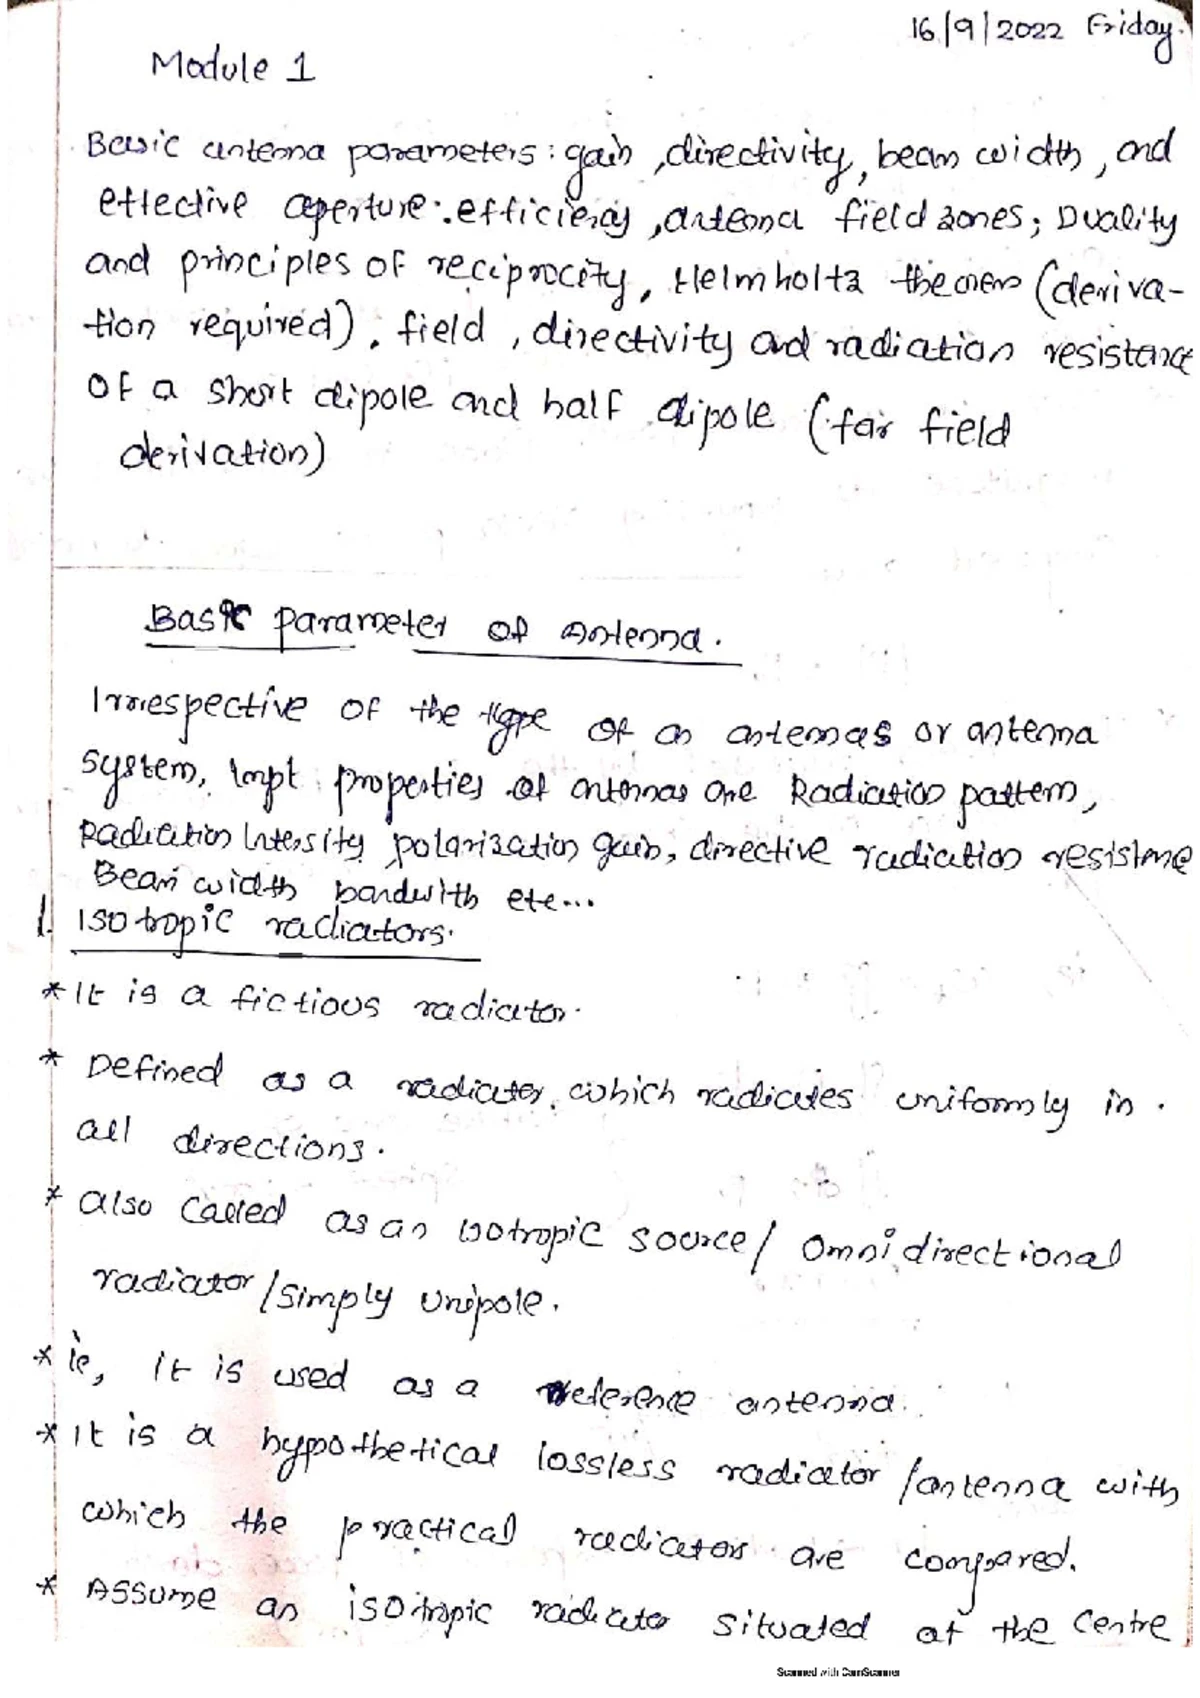 16/9/2022 Friday.
Module 1
Basic antenna parameters: gain, directivity, beam width, and
effective aperture. efficiency, antenna field zones; Duality
and principles of reciprocity, Helmholtz theorem (deriva-
tion required), field, directivity and radiation resistance
of a short dipole and half dipole (far field
derivation)
Basic parameter of Antenna.
Irrespective of the type of an antennas or antenna
system, Impt properties of antennas are Radiation pattern,
Radiation Intersity, polarization gain, directive radiation resistance
Beam width bandwith etc...
1. Isotropic radiators.
* It is a fictious radiator.
* Defined as a radiator, which radiates uniformly in
all directions.
* Also called as an isotropic source/ Omnidirectional
radiator/simply unipole.
* ie, it is used as a reference antenna.
* It is a hypothetical lossless radiator/antenna with
which the practical radiators are compared.
* Assume an isotropic radiator situated at the centre
Scanned with CamScanner